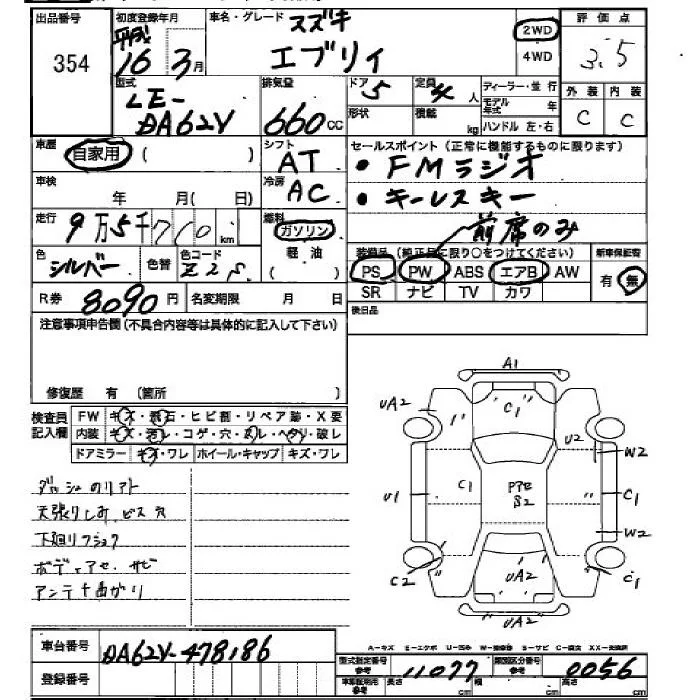 出品番号 初度登録年月 車名・グレード スズキ 評価点
354 平成 16 3月 エブリイ 2WD 4WD 3.5
型式 排気量 ドア 5 定員 4人 ディーラー・並行 外装 内装
LE-DA62V 660cc 形状 積載 kg モデル年式 年 ハンドル 左・右 C C
車歴 自家用 ( ) シフト AT セールスポイント (正常に機能するものに限ります)
・FMラジオ
車検 年 月( 日) 冷房 AC ・キーレスキー
走行 9万5千710km 燃料 ガソリン 軽油 ( ) 前席のみ
色 シルバー 色替 色コード Z2S 装備品 (純正品に限り○をつけてください) 新車保証書
PS PW ABS エアB AW 有 無
R券 8090円 名変期限 月 日 SR ナビ TV カワ
注意事項申告欄(不具合内容等は具体的に記入して下さい) 後日品
修復歴 有 (箇所 )
検査員記入欄 FW キズ・飛石・ヒビ割・リペア跡・X要
内装 キズ・汚レ・コゲ・穴・スレ・ヘタリ・破レ
ドアミラー キズ・ワレ ホイール・キャップ キズ・ワレ
天張りしみ、ビス穴
ボディアセ、サビ
アンテナ曲がり
A1
UA2 C1
U2 W2
U1 C1 C1
W2
C2 UA2 C1
UA2
車台番号 DA62V-478186
登録番号 型式指定番号 11077 類別区分番号 0056
長さ cm 幅 cm 高さ cm